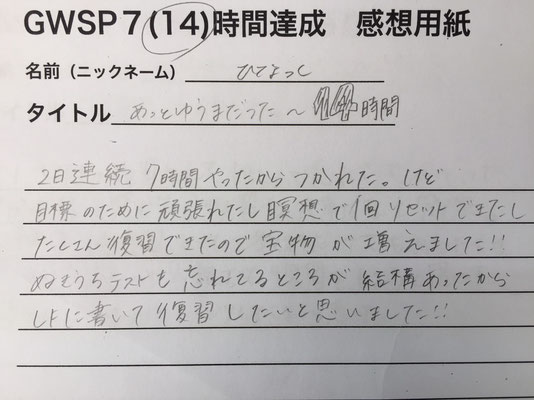 GWSP7(14)時間達成 感想用紙
名前(ニックネーム) ひでよっし
タイトル あっとゆうまだった〜14時間
2日連続 7時間やったからつかれた。けど
目標のために頑張れたし瞑想で1回リセットできたし
たくさん復習できたので宝物が増えました!!
ぬきうちテストも忘れてるところが結構あったから
LFに書いて復習したいと思いました!!